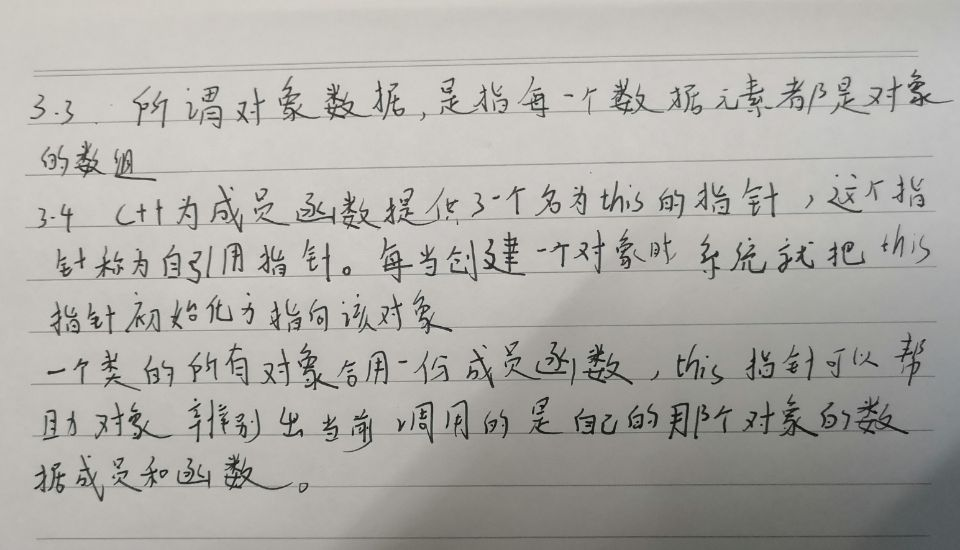 3.3. 所谓对象数据,是指每一个数据元素都是对象
的数组
3.4 C++为成员函数提供了一个名为this的指针,这个指
针称为自引用指针。每当创建一个对象时 系统就把this
指针初始化为指向该对象
一个类的所有对象合用一份成员函数,this指针可以帮
助对象辨别出当前调用的是自己的那个对象的数
据成员和函数。